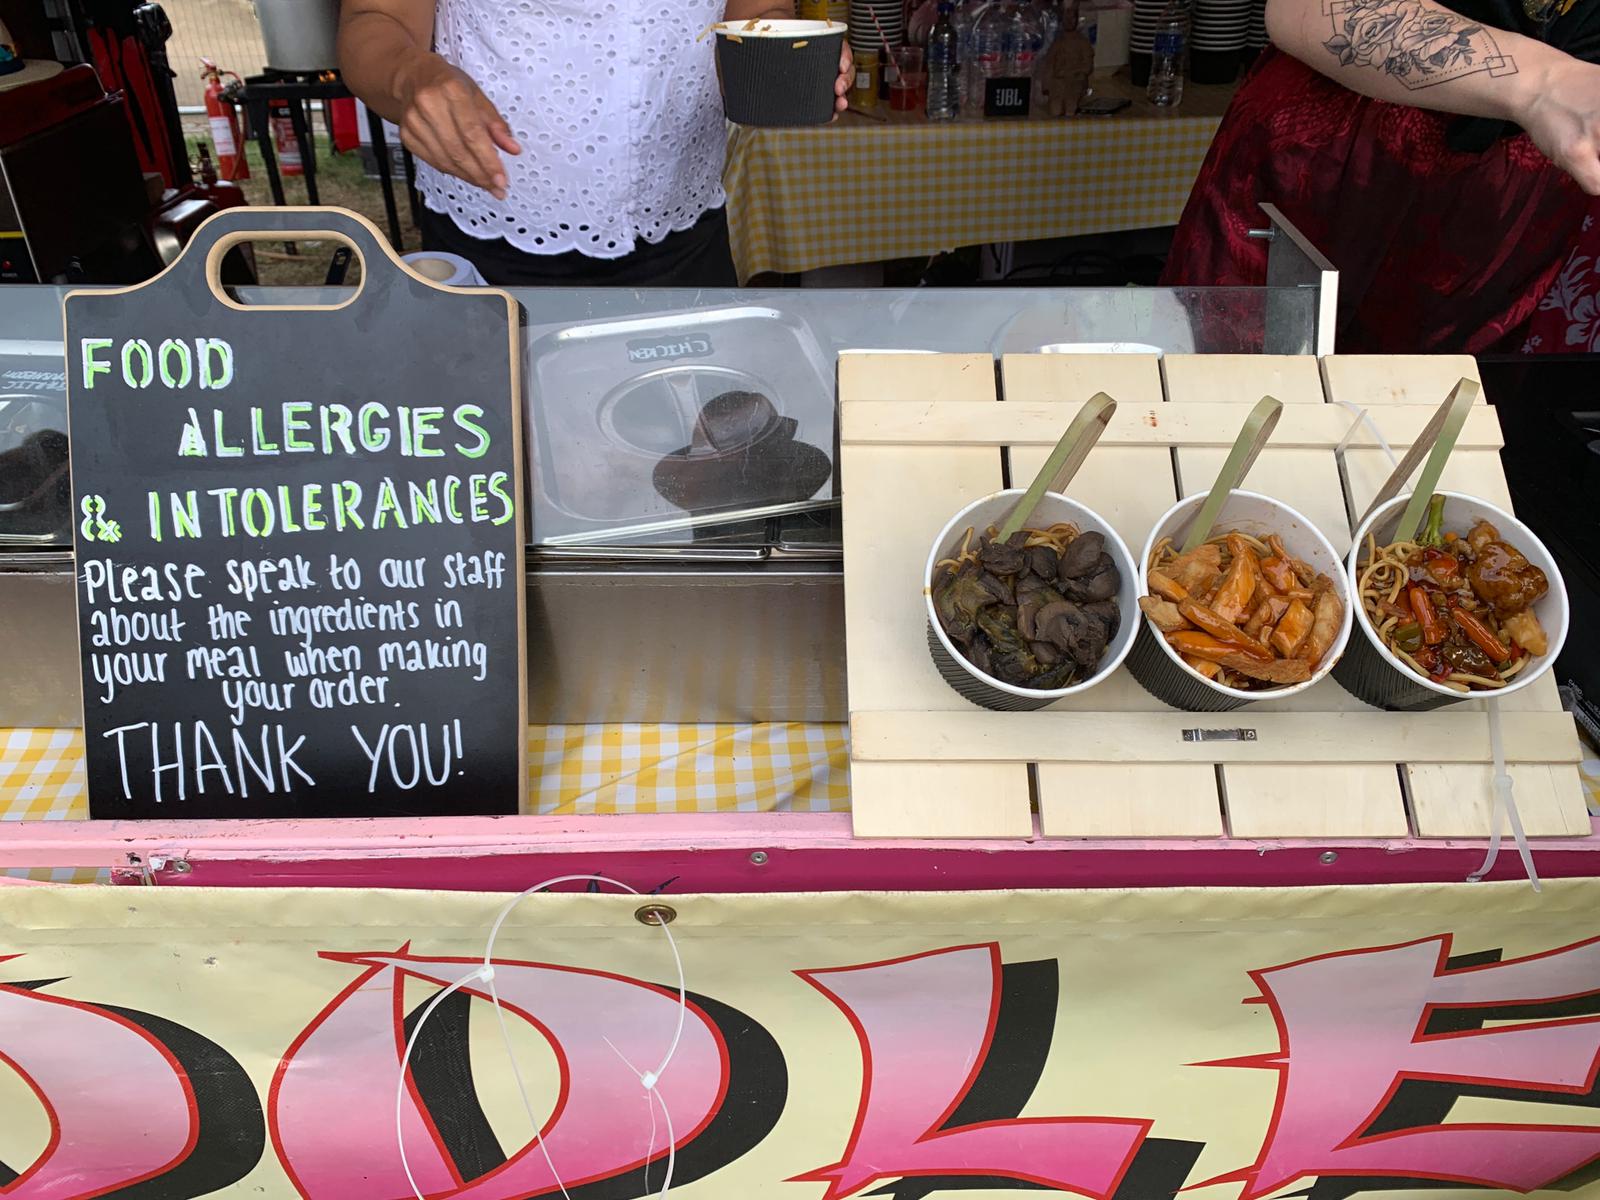 FOOD
ALLERGIES
& INTOLERANCES
Please speak to our staff
about the ingredients in
your meal when making
your order.
THANK YOU!
CHICKEN
JBL
DDLE